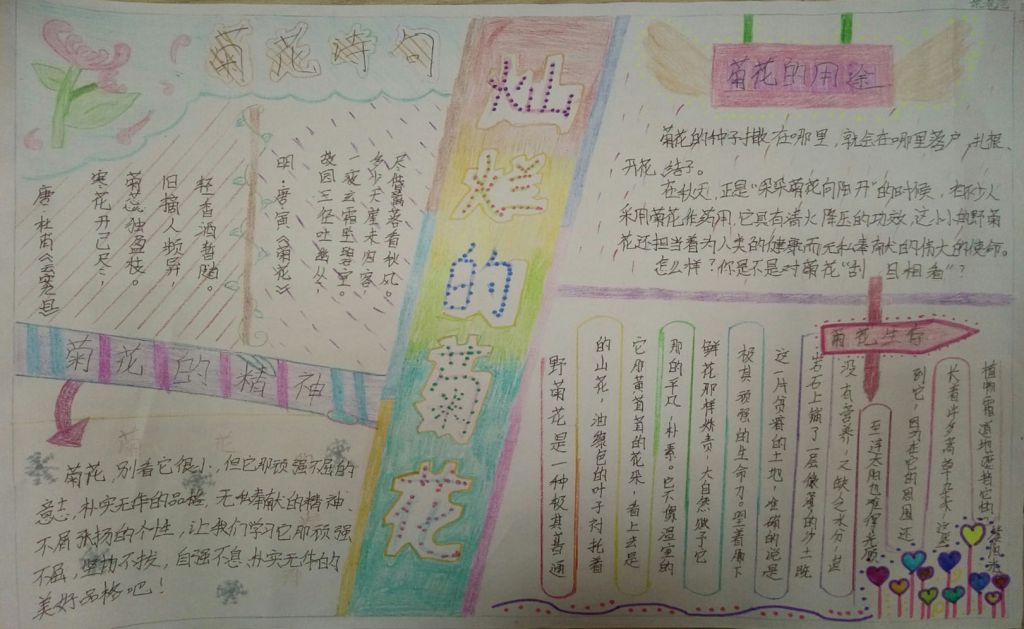 灿烂的菊花
菊花诗句
尽管贫寒看秋风。
多少天涯未归客,
一夜云霜坠碧空。
故园三径吐幽丛,
明·唐寅《菊花》
轻香酒暂随。
旧摘人频异,
菊蕊独盈枝。
寒花开已尽,
唐·杜甫《云安
菊花的精神
菊花,别看它很小,但它那顽强不屈的
意志,朴实无华的品格,无私奉献的精神、
不屑张扬的个性,让我们学习它那顽强
不屈,坚韧不拔,自强不息,朴实无华的
美好品格吧!
菊花的用途
菊花的种子撒在哪里,就会在哪里落户,扎根、
开花、结子。
在秋天,正是“朵朵菊花向阳开”的时候,
采用菊花作药用,它具有清火降压的功效,这小小的野菊
花还把当着为人类的健康而无私奉献的伟大的使命。
怎么样?你是不是对菊花“刮目相看”?
菊花生存
野菊花是一种极其普通
的山花,油绿色的叶子衬托着
它那黄黄的的花朵,看上去是
那的平凡、朴素。它不像温室的
鲜花那样娇贵,大自然赋予它
极其顽强的生命力。坚着脚下
这一片贫瘠的土地,准确的说是
岩石上铺了一层很薄的沙土,既
没有营养,又缺乏水分,
到它,因为在它的周围还
长着许多高草杂木,这些